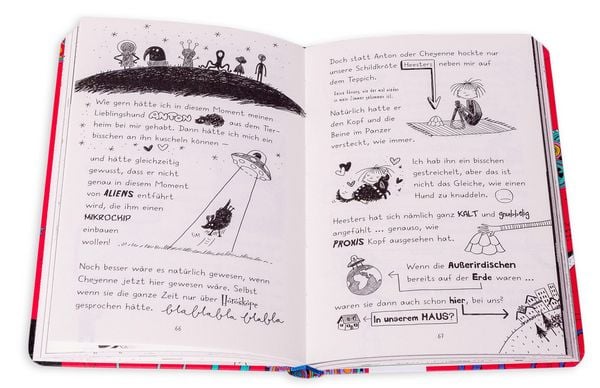 Wie gern hätte ich in diesem Moment meinen
Lieblingshund ANTON aus dem Tier-
heim bei mir gehabt. Dann hätte ich mich ein
bisschen an ihn kuscheln können –
und hätte gleichzeitig
gewusst, dass er nicht
genau in diesem Moment
von ALIENS entführt
wird, die ihm einen
MIKROCHIP
einbauen
wollen!
Noch besser wäre es natürlich gewesen, wenn
Cheyenne jetzt hier gewesen wäre. Selbst
wenn sie die ganze Zeit nur über Horoskope
gesprochen hätte. blablabla blabla
66
Doch statt Anton oder Cheyenne hockte nur
unsere Schildkröte Heesters neben mir auf
dem Teppich.
Keine Ahnung, wie der mal wieder
in mein Zimmer gekommen ist.
Natürlich hatte er
den Kopf und die
Beine im Panzer
versteckt, wie immer.
Ich hab ihn ein bisschen
gestreichelt, aber das ist
nicht das Gleiche, wie einen
Hund zu knuddeln.
Heesters hat sich nämlich ganz KALT und gnubbelig
angefühlt ... genauso, wie
PRONXIS Kopf ausgesehen hat.
Wenn die Außerirdischen
bereits auf der Erde waren ...
waren sie dann auch schon hier, bei uns?
In unserem HAUS?
67